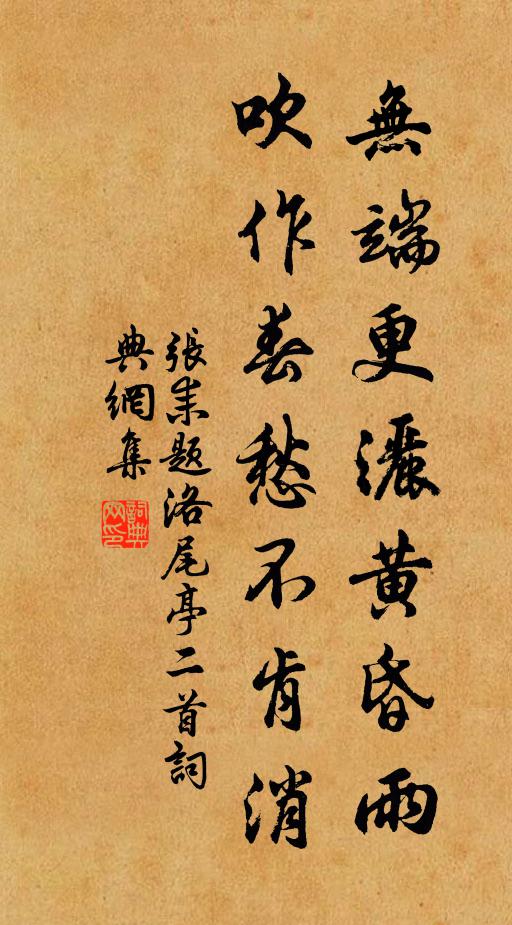 無端更灑黄昏雨
吹作春愁不肯消
張耒題洛尾亭二首詞
典網集
詞典網印